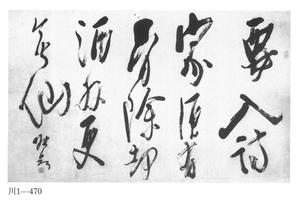 要入詩
家須有
骨除却
酒外更
無仙
川1—470